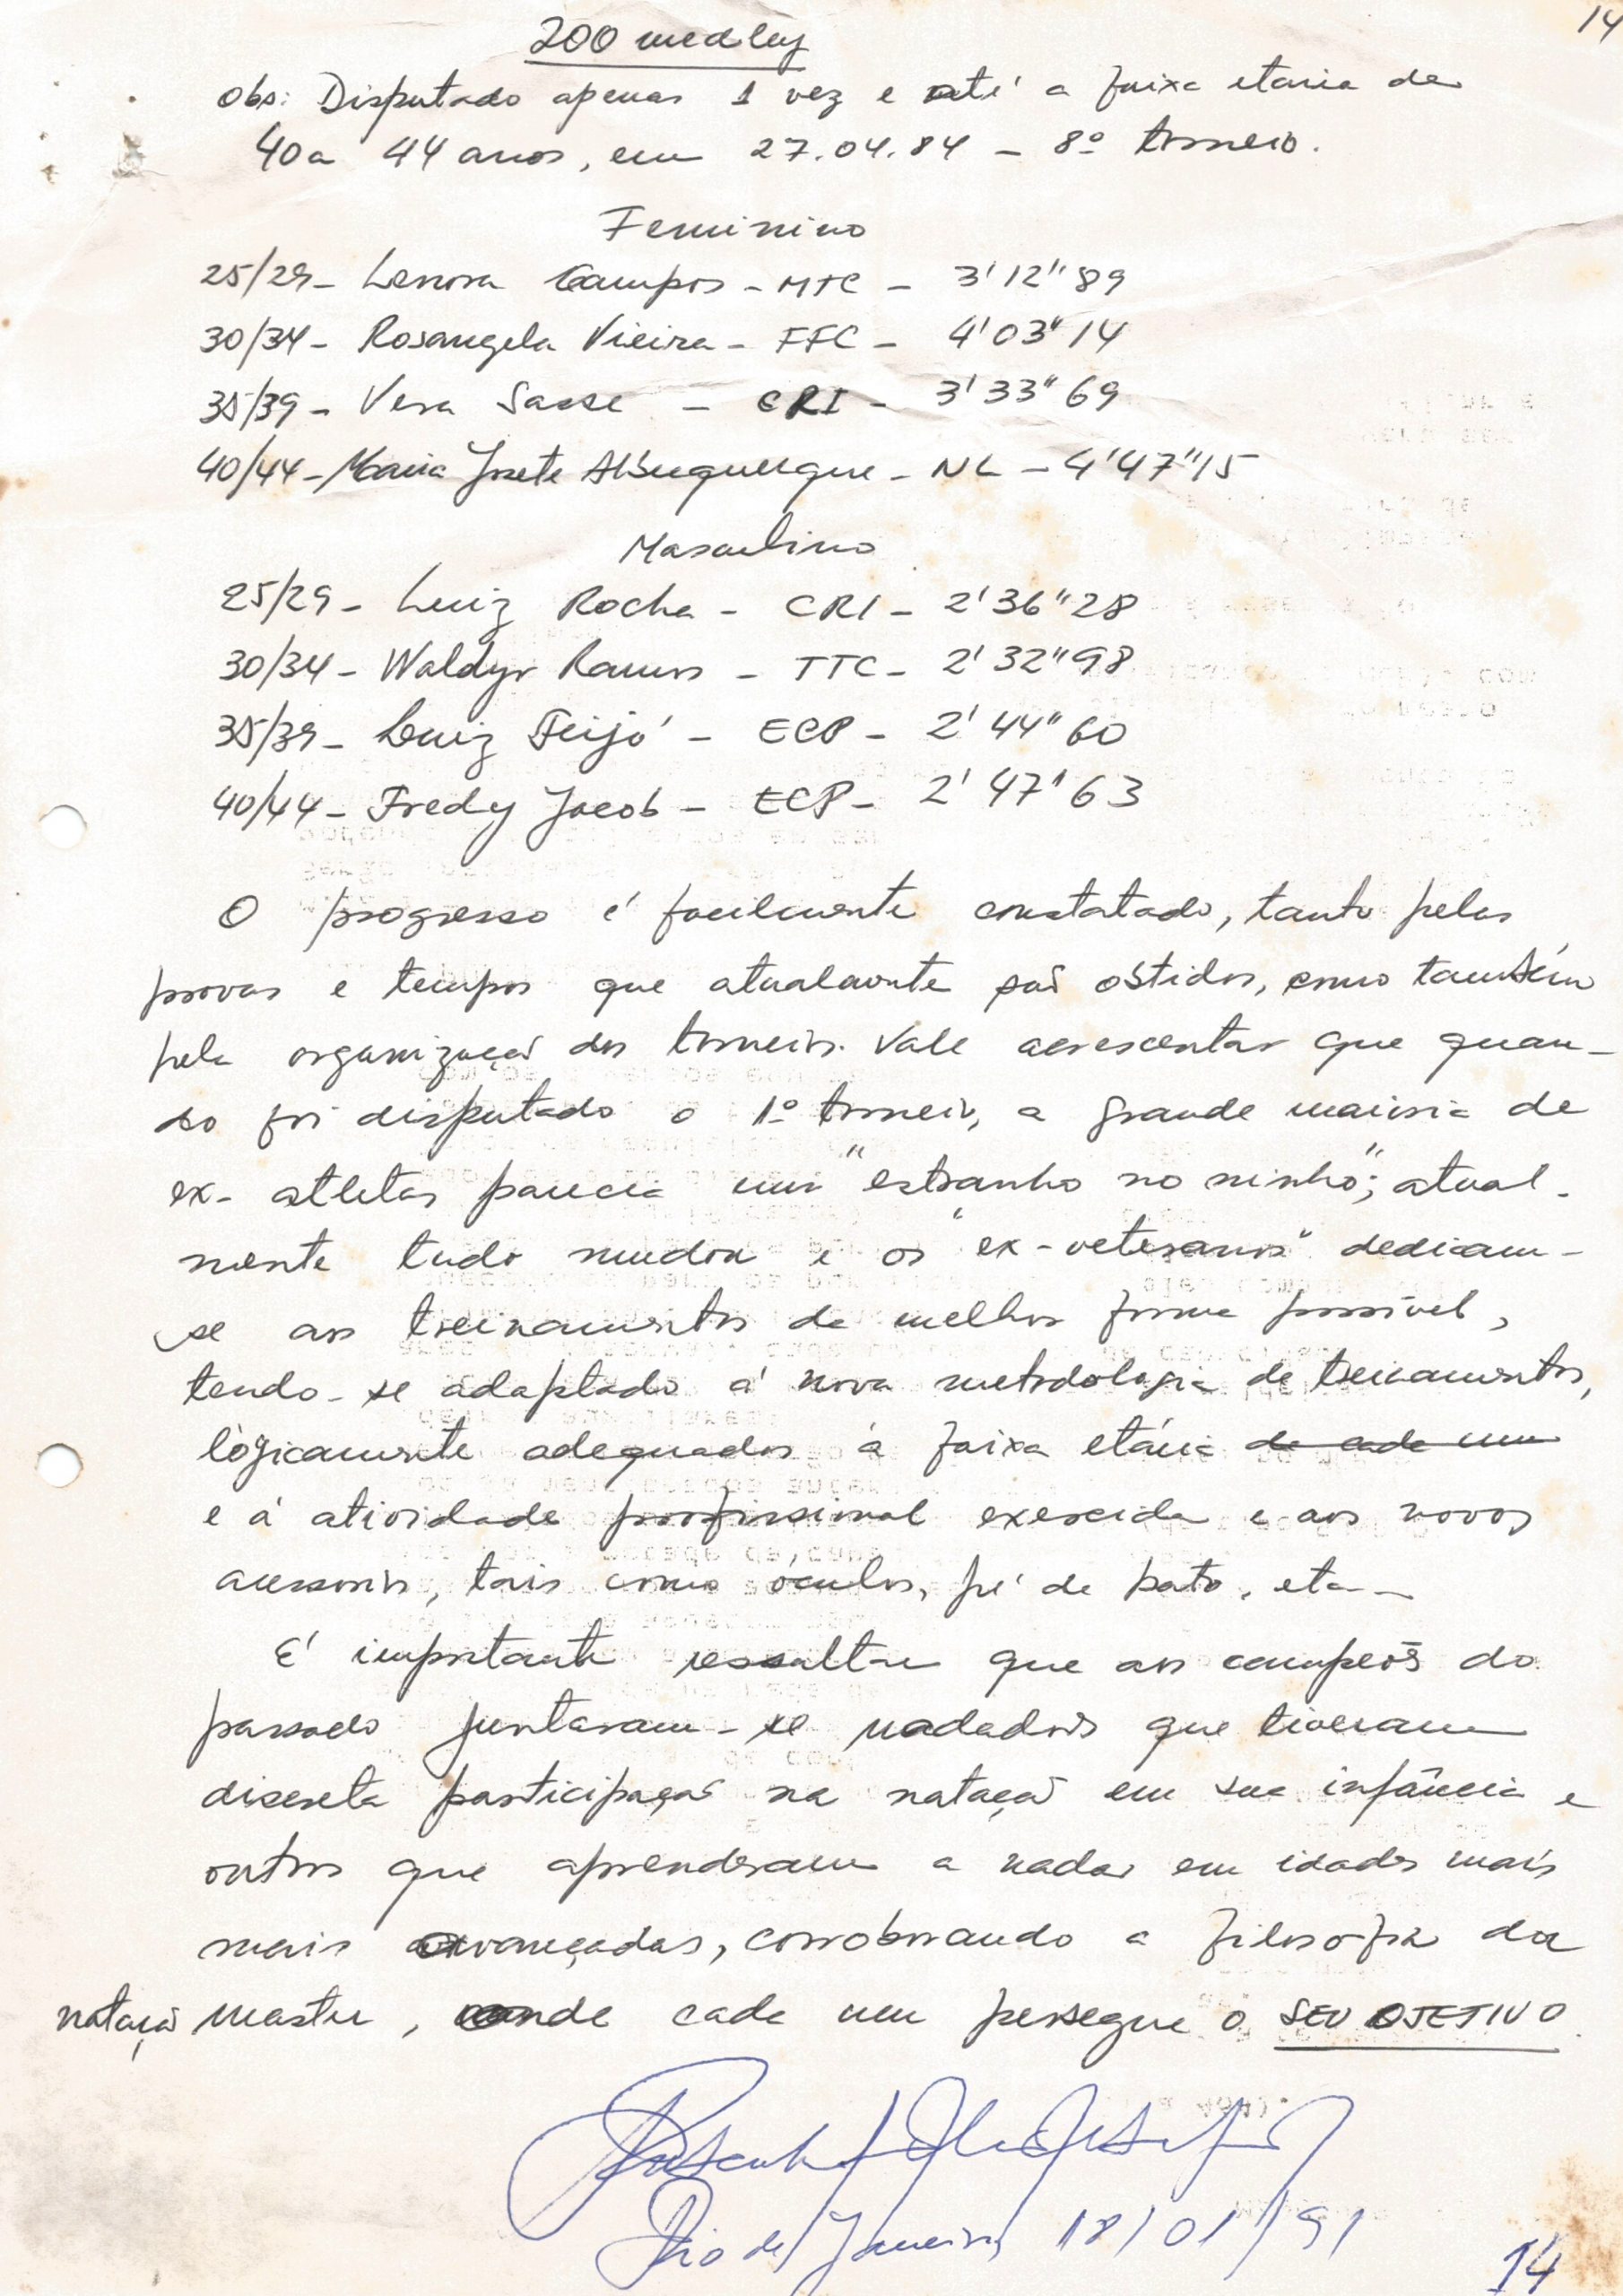 14
200 medley
Obs: Disputado apenas 1 vez e até a faixa etaria de
40 a 44 anos, em 27.04.84 - 8º torneio.
Feminino
25/29 - Lenora Campos - MTC - 3'12"89
30/34 - Rosangela Vieira - FFC - 4'03"14
35/39 - Vera Sasse - CRI - 3'33"69
40/44 - Maria Josete Albuquerque - NL - 4'47"15
Masculino
25/29 - Luiz Rocha - CRI - 2'36"28
30/34 - Waldyr Ramos - TTC - 2'32"98
35/39 - Luiz Feijó - ECP - 2'44"60
40/44 - Fredy Jacob - ECP - 2'47'63
O progresso é facilmente constatado, tanto pelas
provas e tempos que atualmente são obtidos, como também
pela organização dos torneios. Vale acrescentar que quan-
do foi disputado o 1º torneio, a grande maioria de
ex-atletas parecia um "estranho no ninho"; atual-
mente tudo mudou e os "ex-veteranos" dedicam-
se aos treinamentos da melhor forma possível,
tendo-se adaptado á nova metodologia de treinamentos,
lògicamente adequados á faixa etária de cada um
e á atividade profissional exercida e aos novos
acessorios, tais como óculos, pé de pato, etc -
É importante ressaltar que aos campeõs do
passado juntaram-se nadadores que tiveram
discreta participação na natação em sua infância e
outros que aprenderam a nadar em idades mais
mais avançadas, corroborando a filosofia da
natação master, onde cada um persegue o SEU OJETIVO.
Rio de Janeiro, 18/01/91
14